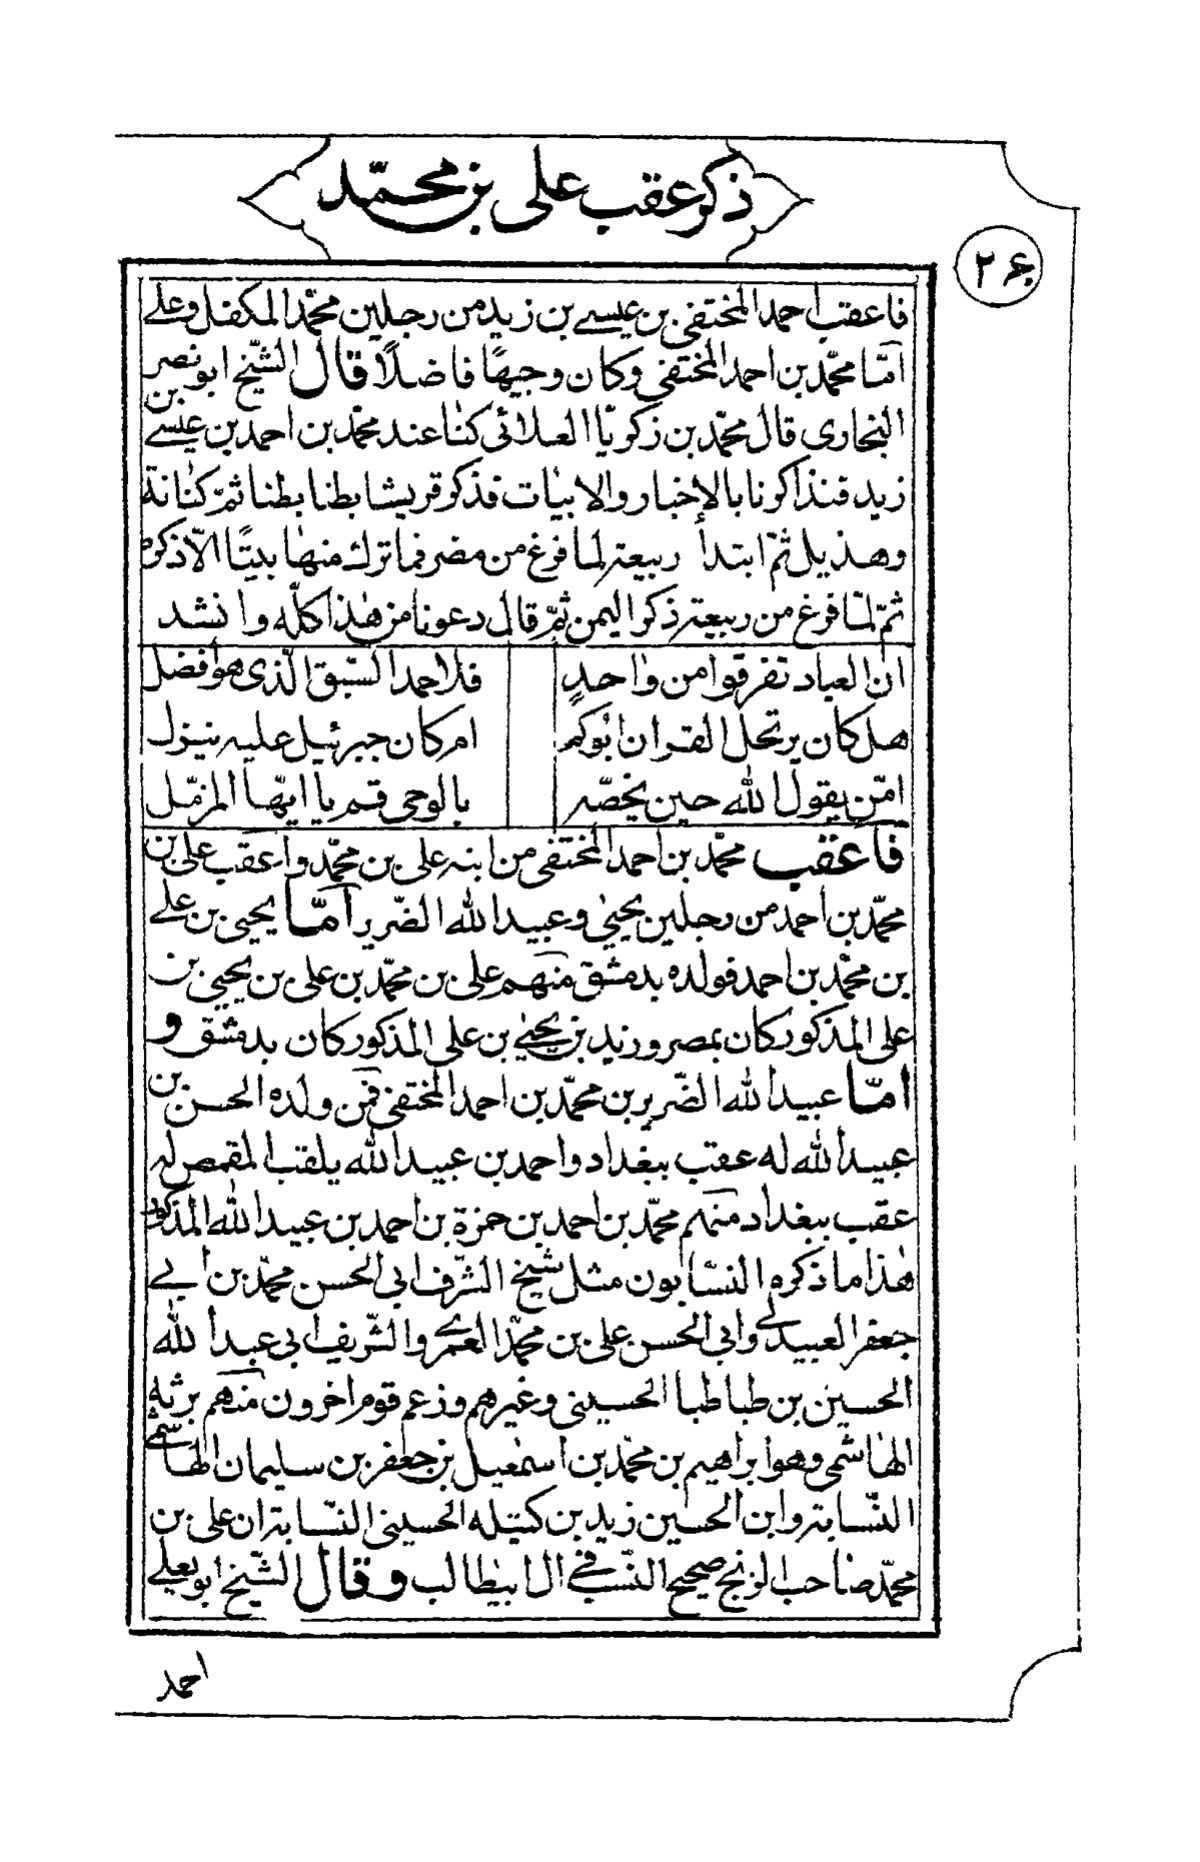 ذكر عقب علی بن محمّد
۲۶
فاعقب احمد المختفی بن عیسے بن زید من رجلین محمّد المكفل وعلے
امّا محمّد بن احمد المختفی وكان وجیهًا فاضلاً قال الشّیخ ابو نصر
البخاری قال محمّد بن زكریّا العلائی كنّا عند محمّد بن احمد بن عیسے بن
زید فتذاكرنا بالإخبار والابیات فذكر قریشا بطنا بطنا ثمّ كنانة
وهذیل ثمّ ابتدأ ربیعة لما فرغ من مضر فما ترك منها بیتًا الاّ ذكره
ثمّ لمّا فرغ من ربیعة ذكر الیمن ثمّ قال دعونا من هٰذا كلّه وانشد
انّ العباد تفرقوا من واحدٍ فلاحمد السّبق الّذی هو افضل
هل كان یرتحل القران ابوكم ام كان جبرئیل علیه ینزل
امّن یقول الله حین یخصّه بالوحی قم یا ایّها المزمّل
فاعقب محمّد بن احمد المختفی من ابنه علی بن محمّد واعقب علی بن
محمّد بن احمد من رجلین یحییٰ وعبید الله الضّریر امّا یحیی بن علے
بن محمّد بن احمد فولده بدمشق منهم علی بن محمّد بن علی بن یحیی بن
علی المذكور كان بمصر وزید بن یحیی بن علی المذكور كان بدمشق و
امّا عبید الله الضّریر بن محمّد بن احمد المختفی فمن ولده الحسن بن
عبید الله له عقب ببغداد واحمد بن عبید الله یلقب المقمص له
عقب ببغداد منهم محمّد بن احمد بن حمزة بن احمد بن عبید الله المذكور
هٰذا ما ذكره النسّابون مثل شیخ الشّرف ابی الحسن محمّد بن ابے
جعفر العبیدلے وابی الحسن علی بن محمّد العمرے والشّریف ابی عبد الله
الحسین بن طباطبا الحسینی وغیرهم وزعم قوم اخرون منهم برثیه
الهاشمی وهو ابراهیم بن محمّد بن اسمٰعیل بن جعفر بن سلیمان الهاشمے
النّسابة وابن الحسین زید بن كتیله الحسینی النّسابة ان علی بن
محمّد صاحب الزنج صحیح النّسب فے ال ابیطالب وقال الشّیخ ابو یعلے
احمد